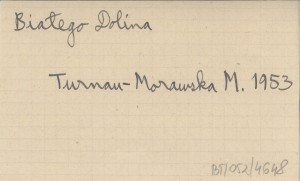 Białego Dolina
Turnau-Morawska M. 1953
BT/052/4648